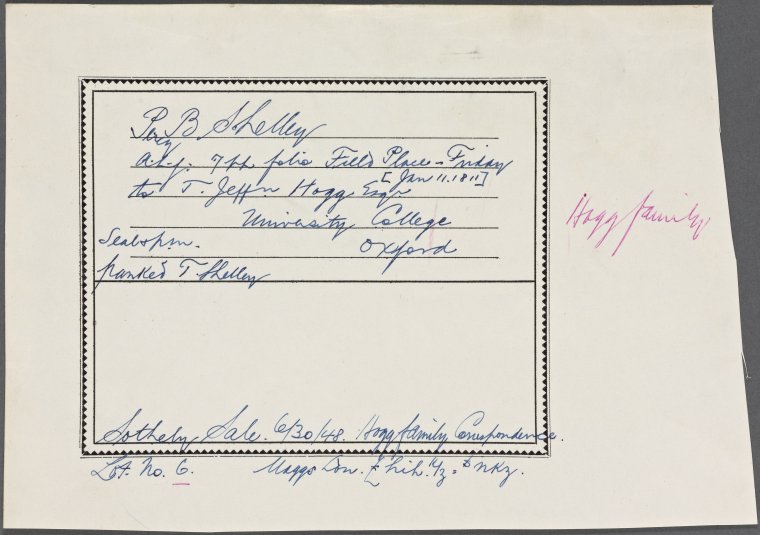 Percy B. Shelley
a.l.s. 7 pp. folio Field Place - Friday
[Jan 11. 1811]
to T. Jeffn Hogg Esqr
University College
Seal & p.m. Oxford
franked T Shelley
Hogg family
Sotheby Sale. 6/30/48. Hogg family Correspondence.
Lot. No. 6. Maggs Lon.